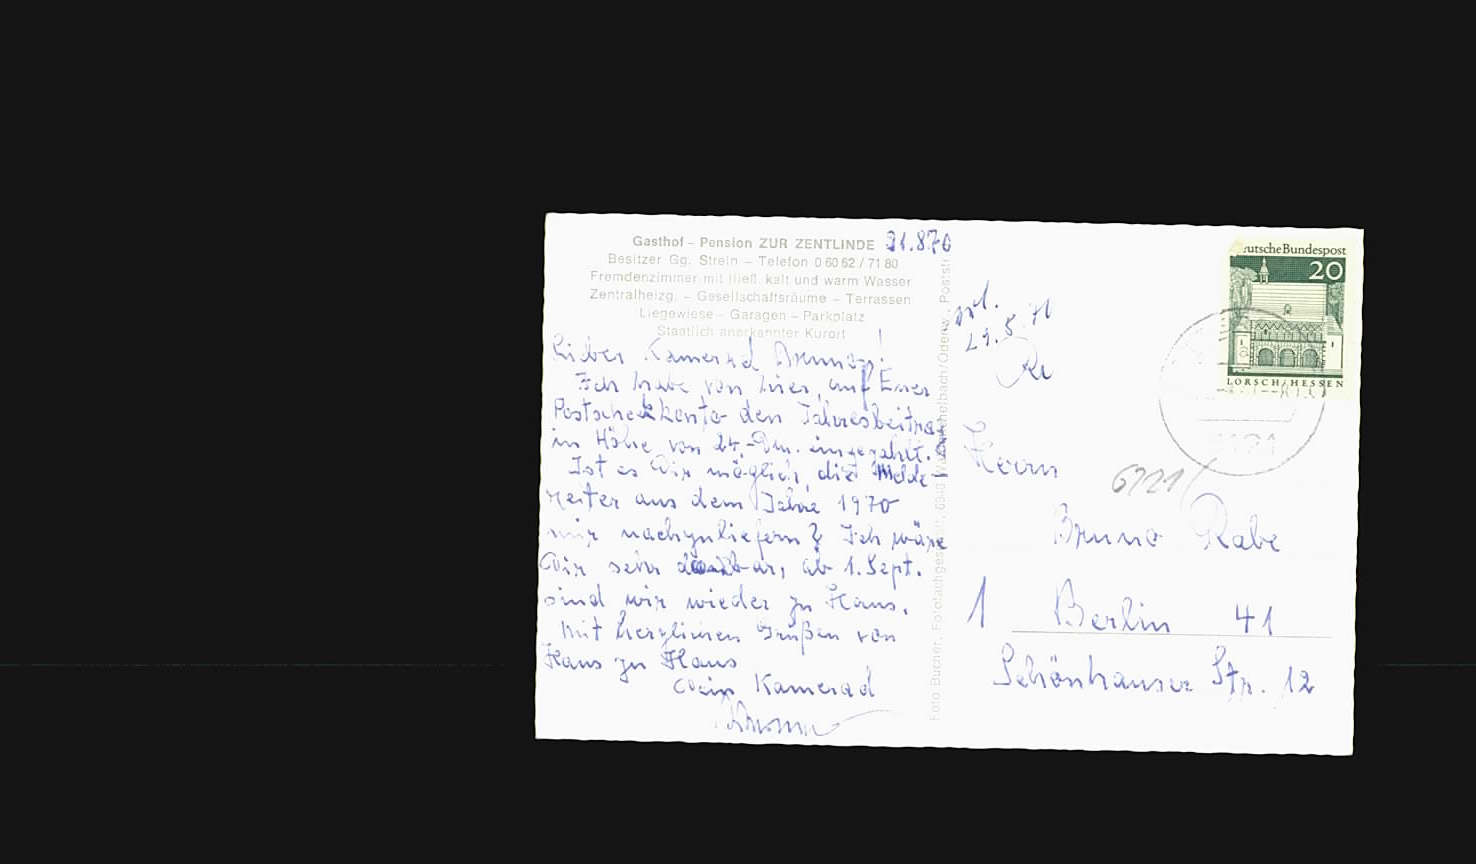 Gasthof – Pension ZUR ZENTLINDE
Besitzer Gg. Strein – Telefon 0 60 62 / 71 80
Fremdenzimmer mit fließ. kalt und warm Wasser
Zentralheizg. – Gesellschaftsräume – Terrassen
Liegewiese – Garagen – Parkplatz
Staatlich anerkannter Kurort
Lieber Kamerad
Ich habe von hier auf Euer
Postscheckkonto den Jahresbeitrag
in Höhe von 24,- Dm. eingezahlt.
Ist es Dir möglich, die Melde-
reiter aus dem Jahre 1970
mir nachzuliefern? Ich wäre
Dir sehr dankbar, ab 1. Sept.
sind wir wieder zu Haus.
Mit herzlichen Grüßen von
Haus zu Haus
Dein Kamerad
Foto Bucher, Odenw., Poststr
Deutsche Bundespost
20
LORSCH/HESSEN
Herrn
Bruno Rabe
1 Berlin 41
Schönhauser Str. 12